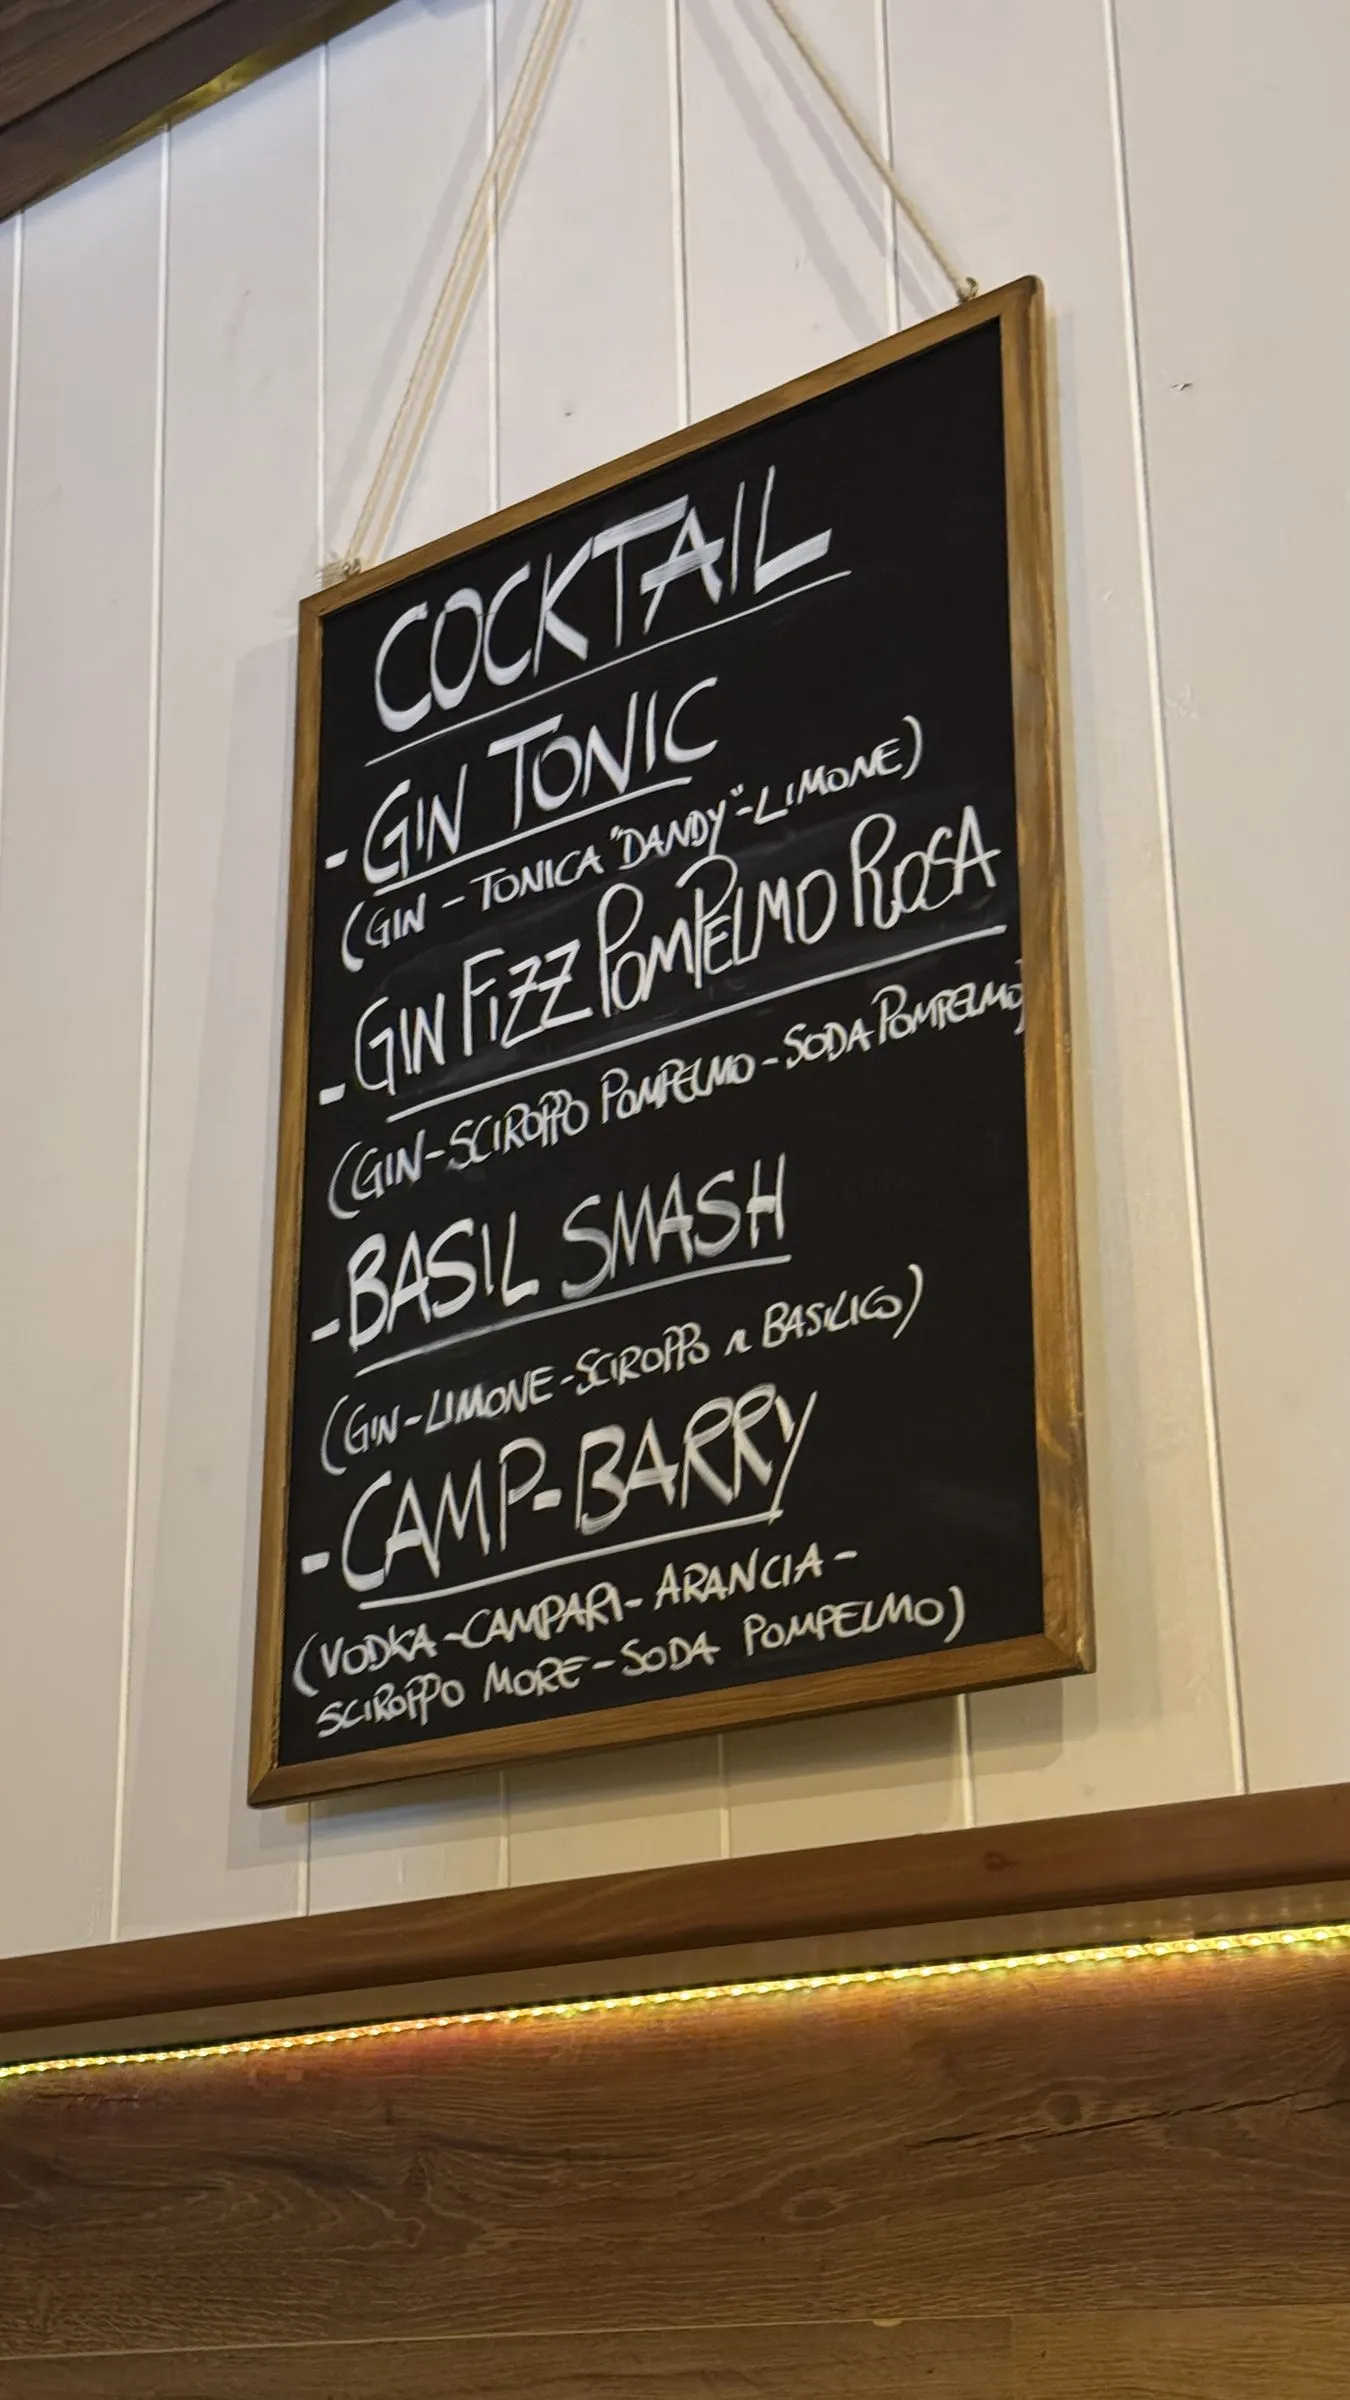 COCKTAIL
- GIN TONIC
(GIN - TONICA "DANDY" - LIMONE)
- GIN FIZZ POMPELMO ROSA
(GIN - SCIROPPO POMPELMO - SODA POMPELMO)
- BASIL SMASH
(GIN - LIMONE - SCIROPPO BASILICO)
- CAMP-BARRY
(VODKA - CAMPARI - ARANCIA -
SCIROPPO MORE - SODA POMPELMO)